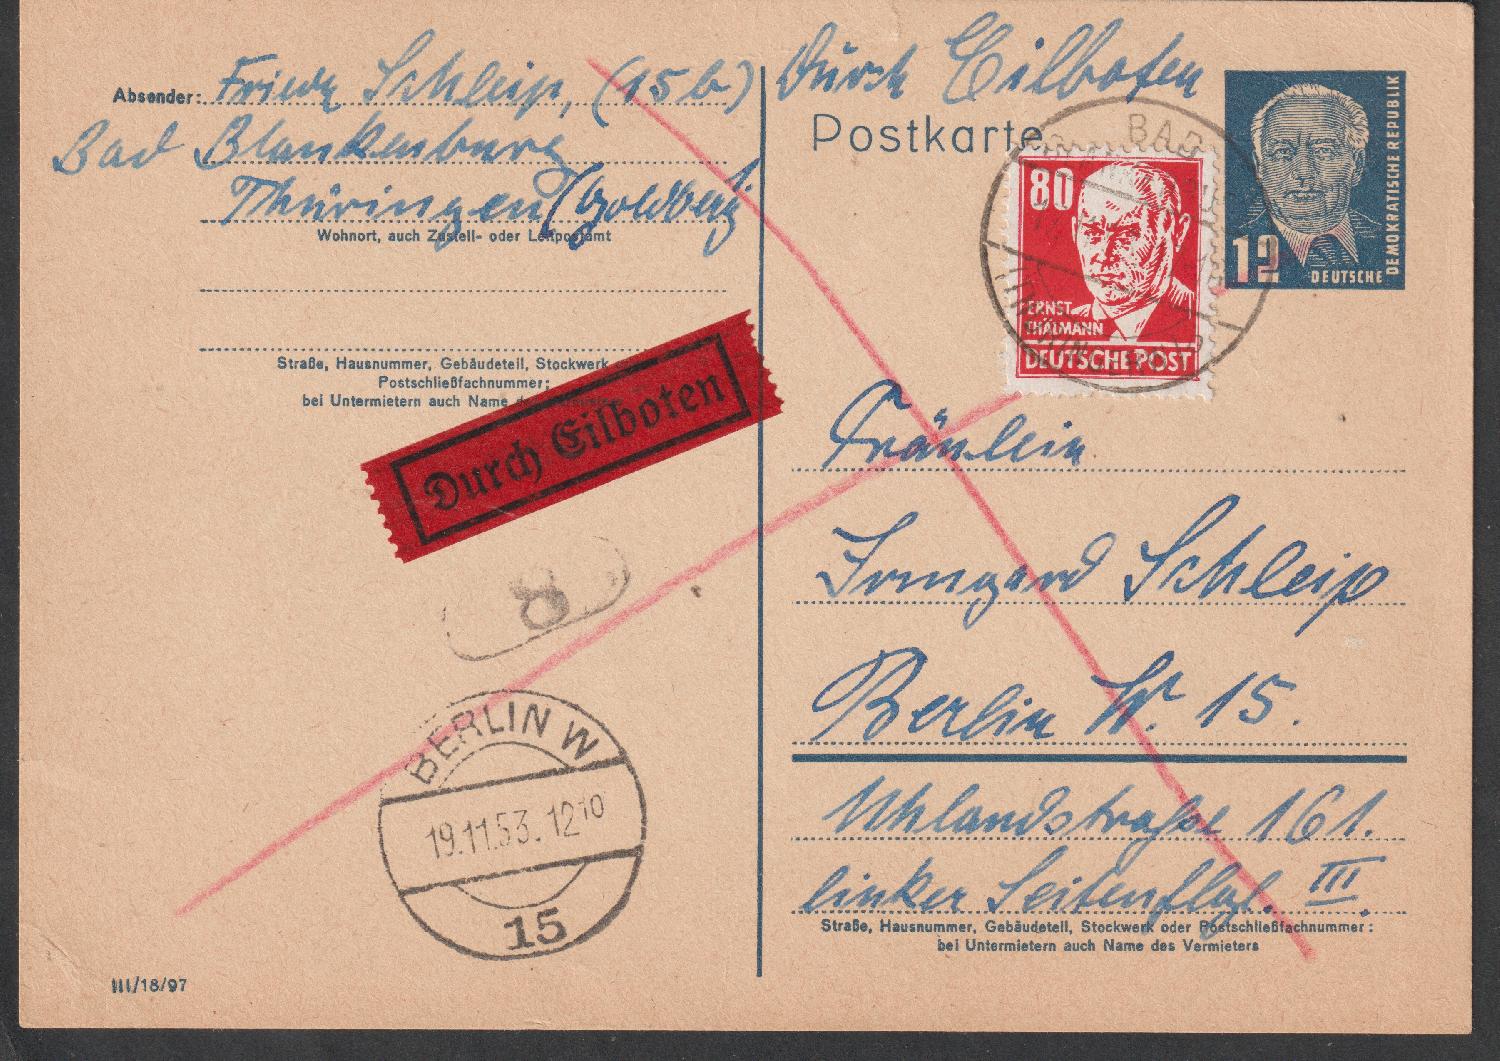 Absender: Frieda Schleip, (15b)
Bad Blankenburg
Thüringen (Goldberg)
Wohnort, auch Zustell- oder Leitpostamt
Straße, Hausnummer, Gebäudeteil, Stockwerk
Postschließfachnummer;
bei Untermietern auch Name
Durch Eilboten
R
BERLIN W
19.11.53. 12¹⁰
15
III/18/97
Durch Eilboten
Postkarte
BAD
80
ERNST
THÄLMANN
DEUTSCHE POST
12
DEUTSCHE
DEMOKRATISCHE REPUBLIK
Fräulein
Irmgard Schleip
Berlin W. 15.
Uhlandstraße 161.
linker Seitenflgl. III.
Straße, Hausnummer, Gebäudeteil, Stockwerk oder Postschließfachnummer:
bei Untermietern auch Name des Vermieters